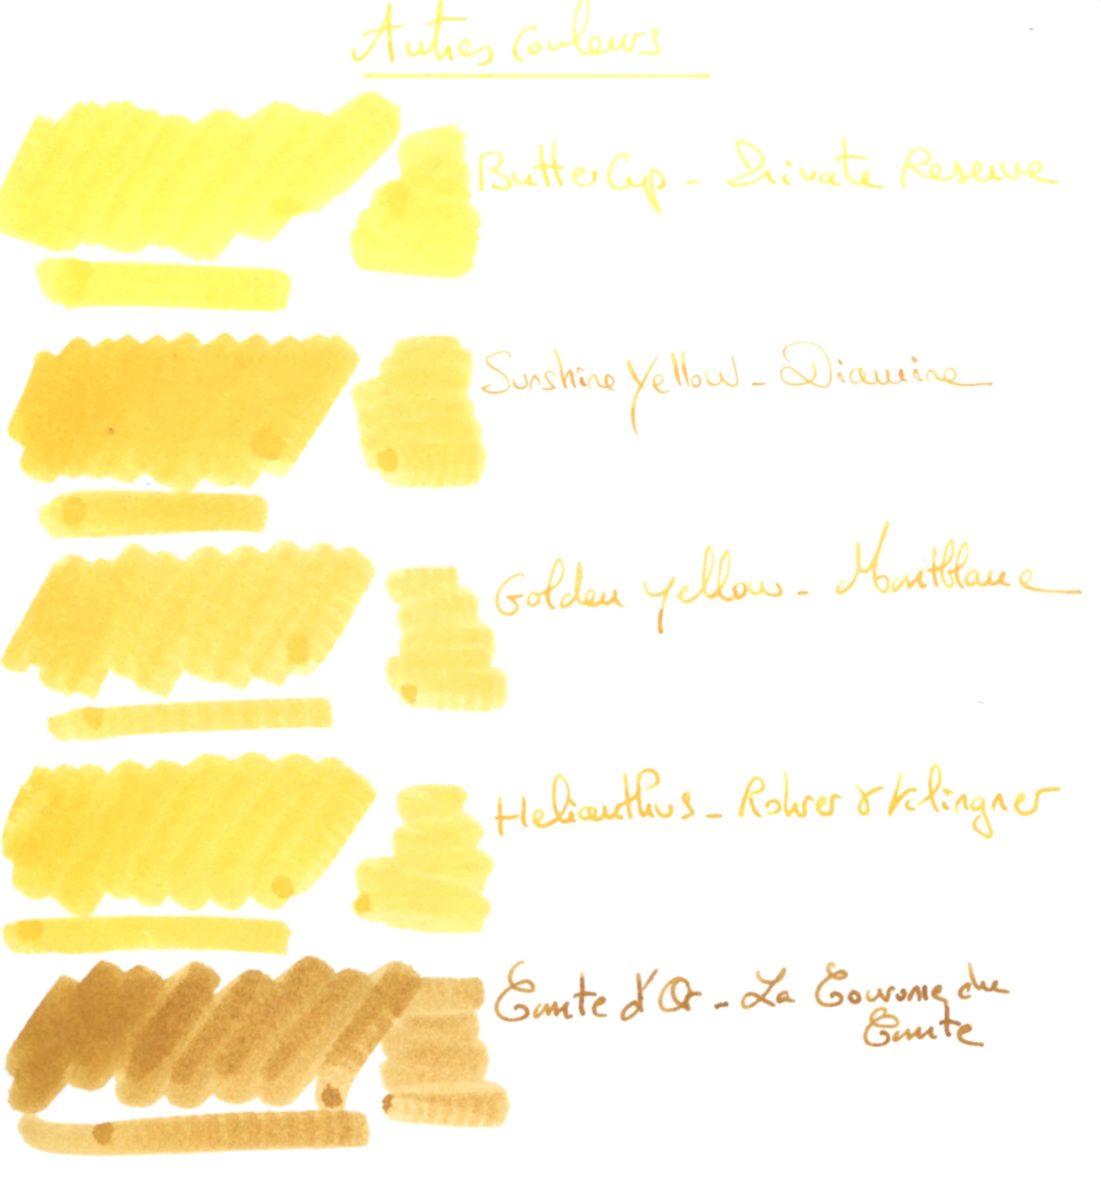 Autres couleurs
ButterCup - Private Reserve
Sunshine Yellow - Diamine
Golden yellow - Montblanc
Helianthus - Rohrer & Klingner
Comte d'Or - La Couronne du
Comte